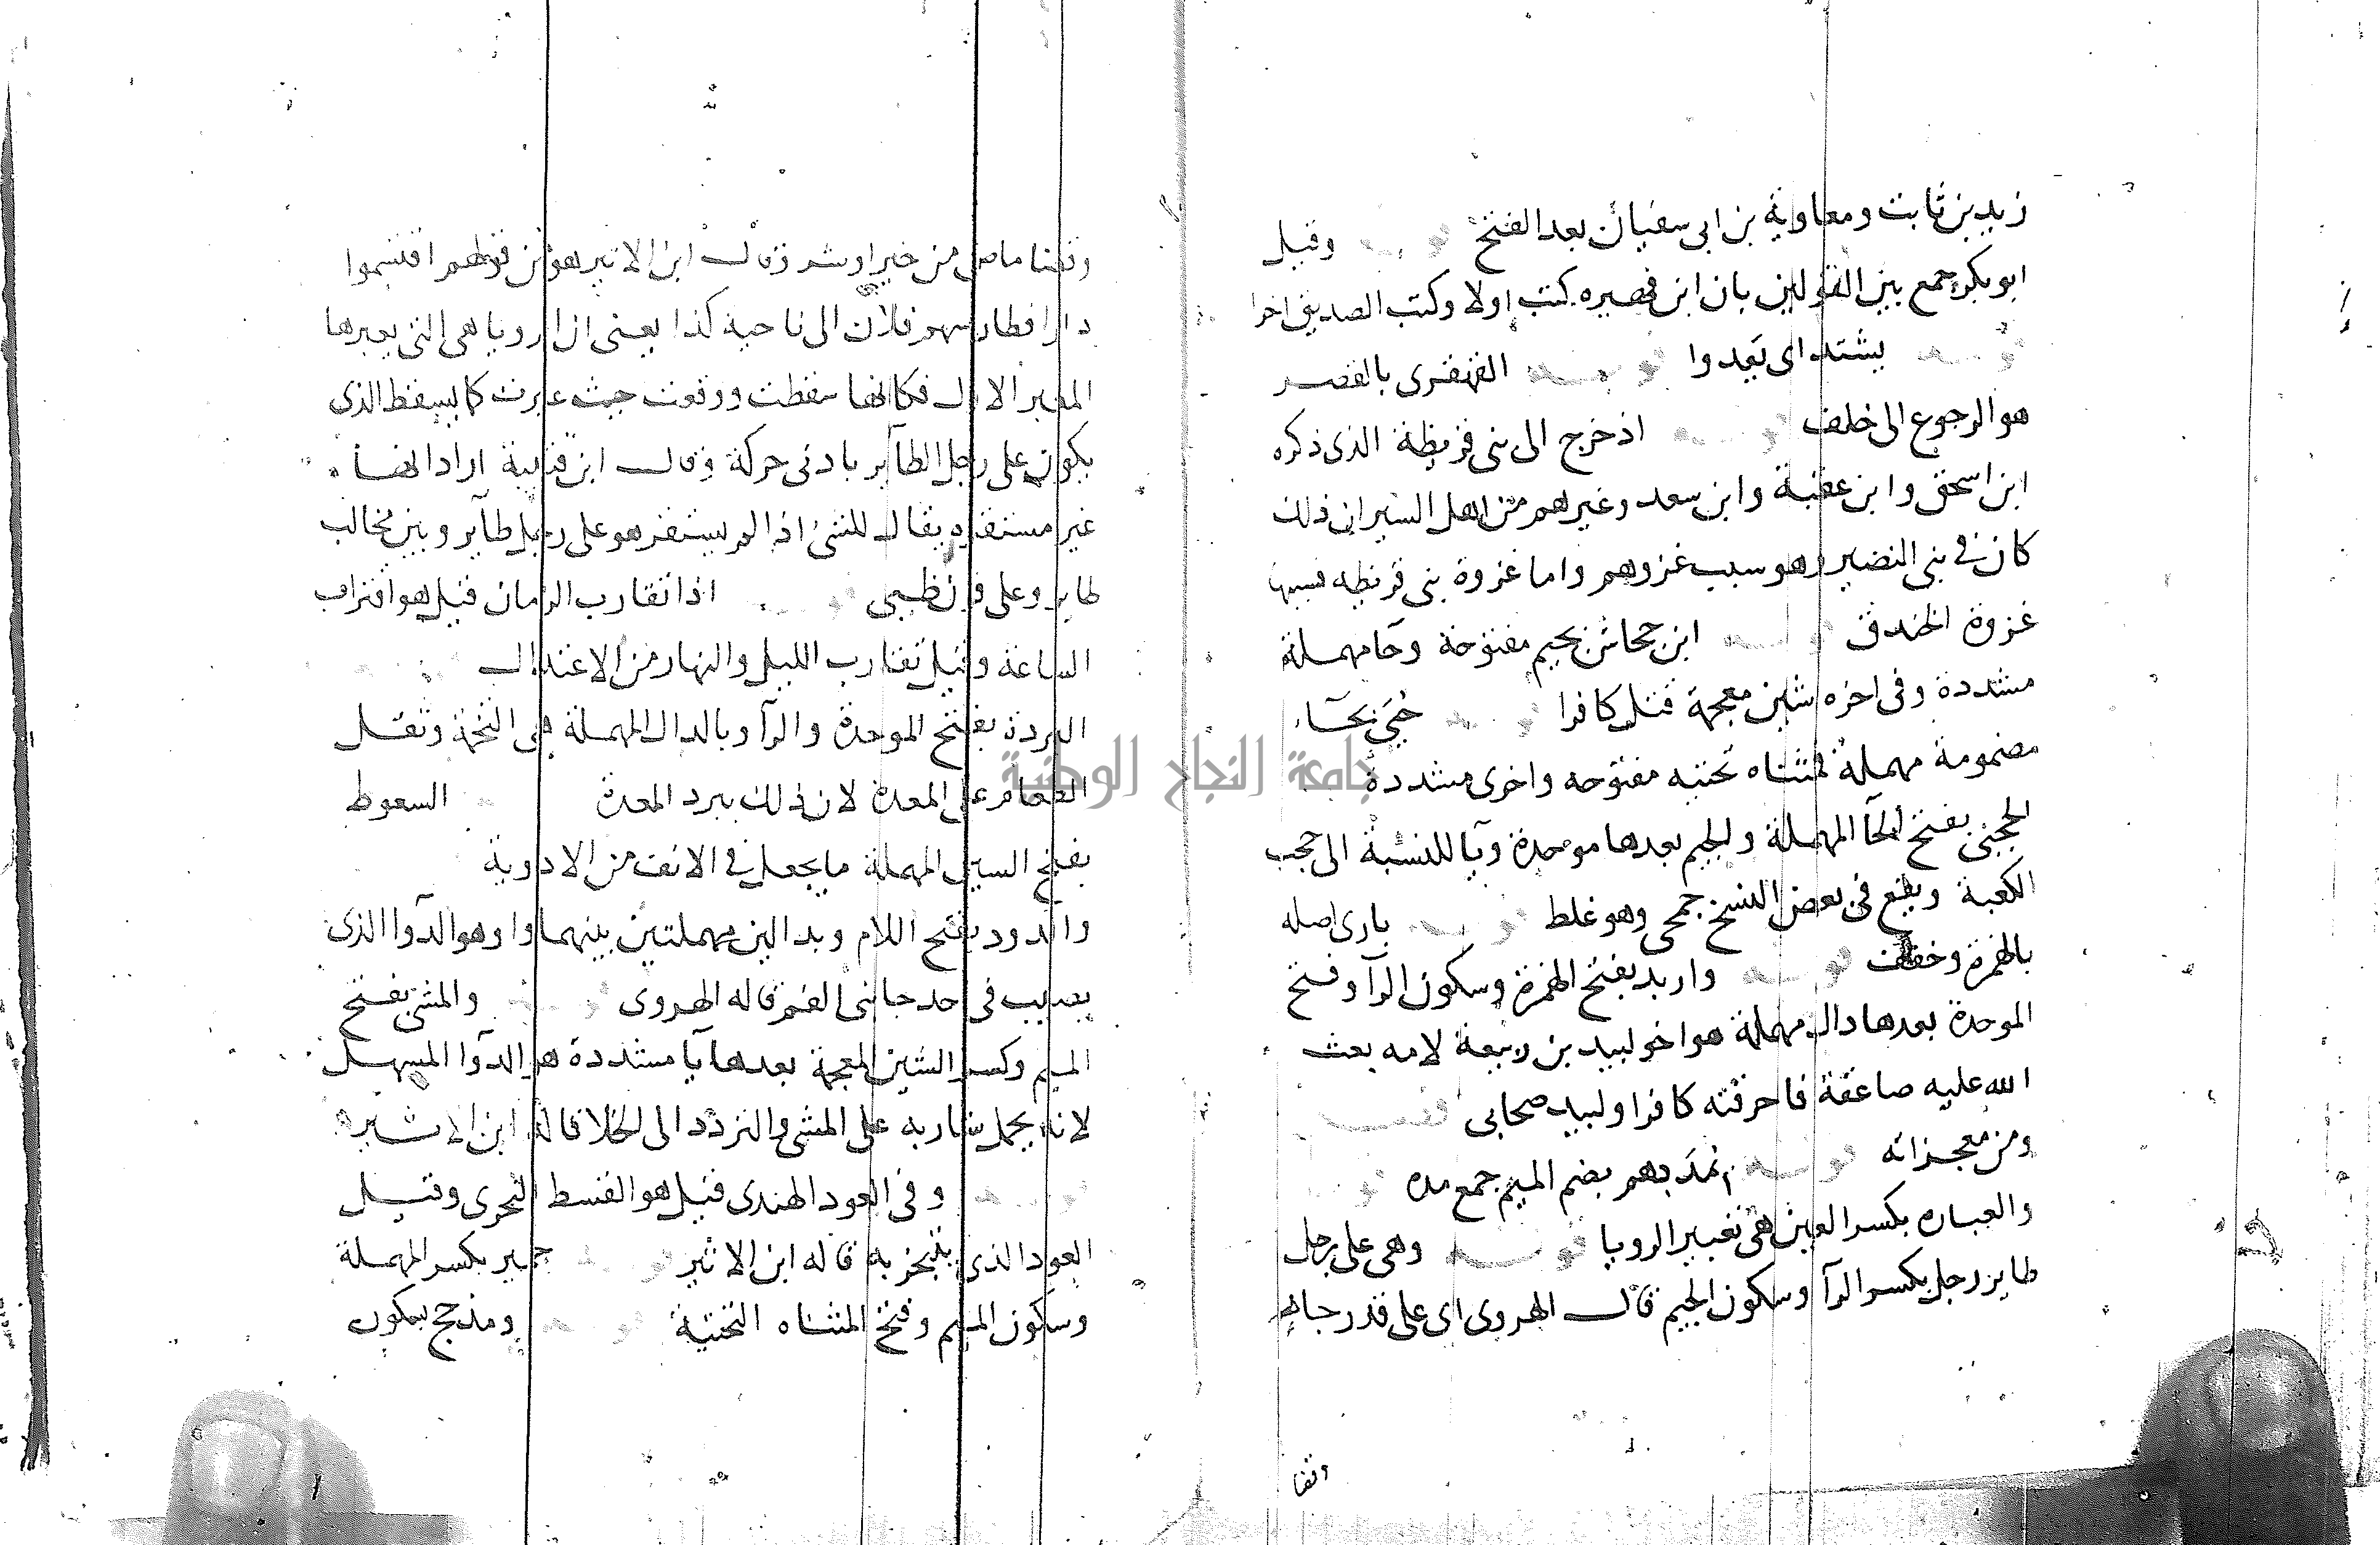 زيد بن ثابت ومعاوية بن ابى سفيان بعد الفتح قوله وقيل
ابو بكر جمع بين القولين بان ابن فهيره كتب اولا وكتب الصديق اخرا
قوله يشتد اى يَعِدوا قوله القهقرى بالقصر
هو الرجوع الى خلف قوله اذ خرج الى بنى قريظة الذى ذكره
ابن اسحق وابن عقبة وابن سعد وغيرهم من اهل السير ان ذلك
كان فى بنى النضير وهو سبب غزوهم واما غزوة بنى قريظه فسببها
غزوة الخندق قوله ابن جحاش بجيم مفتوحة وحا مهملة
مشددة وفى اخره شين معجمة قتل كافرا قوله حُيَى بحآء
مضمومة مهملة فمثناه تحتيه مفتوحه واخرى مشددة
الحجبى بفتح الحآ المهملة والجيم بعدها موحدة ويآ للنسبة الى حجب
الكعبة ويقع فى بعض النسخ جمحى وهو غلط قوله بارى اصله
بالهمزة وخفف قوله واربد بفتح الهمزة وسكون الرآ وفتح
الموحدة بعدها دال مهملة هو اخو لبيد بن ربيعة لامه بعث
الله عليه صاعقة فاحرقته كافرا ولبيد صحابى فصل
ومن معجزاته قوله نمدّ بهم بضم الميم جمع مده قوله
والعباره بكسر العين هى تعبير الرويا قوله وهى على رجل
طاير رجل بكسر الرآ وسكون الجيم قال الهروى اى على قدر جار
وقفا
وقضا ماض من خير او شر وقال ابن الاثير هو من قولهم اقتسموا
دارا فطار سهم فلان الى ناحية كذا يعنى ان الرويا هى التى يعبرها
المعبر الاول فكانها سقطت ووقعت حيث عبرت كما يسقط الذى
يكون على رجل الطآير بادنى حركة وقال ابن قتيبة اراد انها
غير مستقره يقال للشئ اذا لم يستقر هو على رجل طآير وبين مخالب
طاير وعلى قرن ظبى قوله اذا تقارب الزمان قيل هو اقتراب
الساعة وقيل تقارب الليل والنهار من الاعتدال
البردة بفتح الموحدة والرآ وبالدال المهملة هى التخمة وثقل
الطعام على المعدة لان ذلك يبرد المعدة السعوط
بفتح السين المهملة ما يجعل فى الانف من الادوية
واللدود بفتح اللام وبدالين مهملتين بينهما واو هو الدآوا الذى
يصيب فى احد جانبى الفم قاله الهروى قوله والمشى بفتح
الميم وكسر الشين المعجمة بعدها يآ مشددة هو الدآوا المسهل
لانه يحمل شاربه على المشى والتردد الى الخلا قاله ابن الاثير
قوله وفى العود الهندى قيل هو القسط البحرى وقيل
العود الذى يتبخر به قاله ابن الاثير قوله حمير بكسر المهملة
وسكون الميم وفتح المثناه التحتية قوله ومذحج بسكون
جامعة النجاح الوطنية